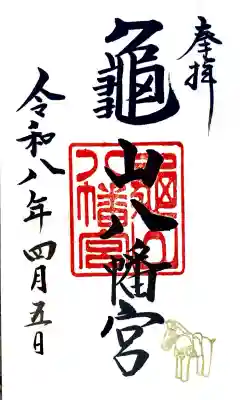 奉拝
龜山八幡宮
令和八年四月五日
龜山八幡宮